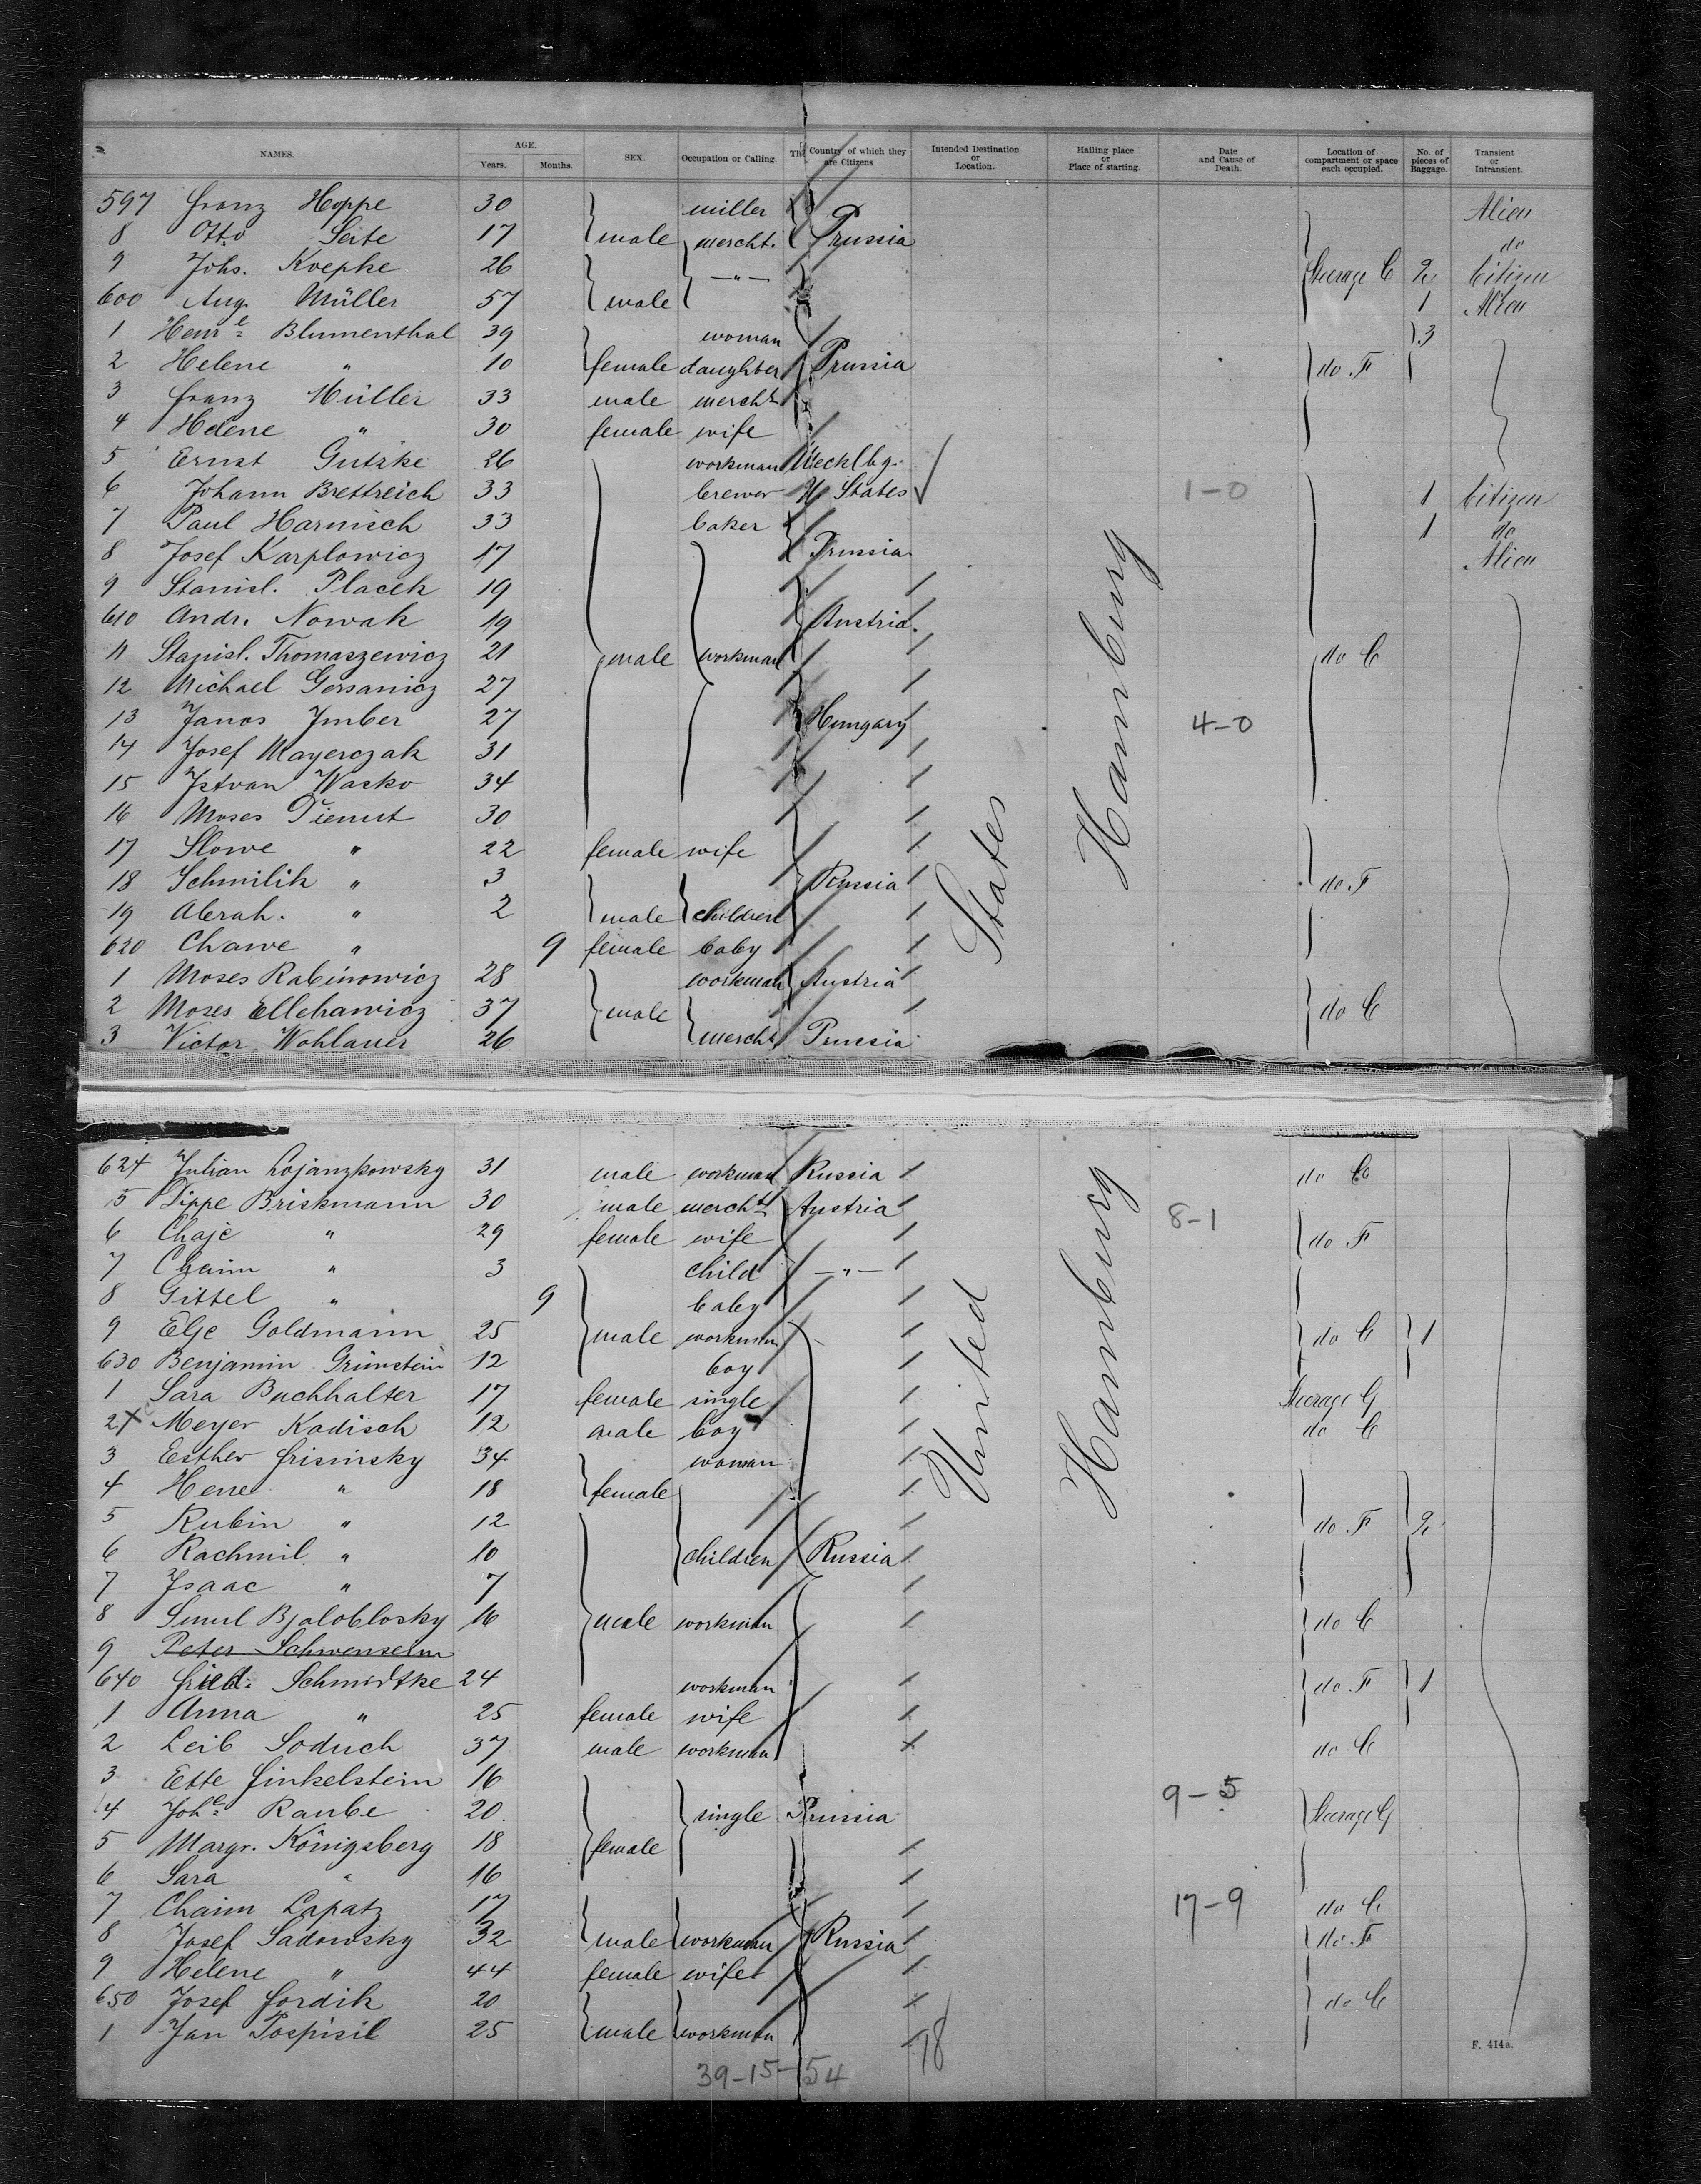 NAMES. AGE. Years. Months. SEX. Occupation or Calling. The Country of which they are Citizens Intended Destination or Location. Hailing place or Place of starting. Date and Cause of Death. Location of compartment or space each occupied. No. of pieces of Baggage. Transient or Intransient.
597 Franz Hoppe 30 miller Alien
8 Otto Seite 17 male mercht. Prussia do
9 Johs. Koepke 26 —"— Steerage C 2 Citizen
600 Aug. Müller 57 male 1 Alien
1 Henr<u>e</u> Blumenthal 39 woman 3
2 Helene " 10 female daughter Prussia do F
3 Franz Müller 33 male mercht
4 Helene " 30 female wife
5 Ernst Gutzke 26 workman Mecklbg.
6 Johann Brettreich 33 brewer U States 1-0 1 Citizen
7 Paul Harnisch 33 baker 1 do
8 Josef Karplowicz 17 Prussia Alien
9 Stanisl. Placek 19
610 Andr. Nowak 19 Austria
11 Stanisl. Thomaszewicz 21 male workman do C
12 Michael Gersanicz 27
13 Janos Imber 27 Hungary 4-0
14 Josef Mayerczak 31
15 Istvan Wasko 34
16 Moses Dienst 30
17 Slowe " 22 female wife
18 Schmilik " 3 Russia do F
19 Abrah. " 2 male children
620 Chawe " 9 female baby
1 Moses Rabinowicz 28 workman Austria
2 Moses Ellchawicz 37 male do C
3 Victor Wohlauer 26 mercht Prussia
States Hamburg
624 Julian Lojanzkowsky 31 male workman Russia do C
5 Pippe Briskmann 30 male mercht Austria 8-1
6 Chaje " 29 female wife do F
7 Chaim " 3 child —"—
8 Gittel " 9 baby
9 Elje Goldmann 25 male workman do C 1
630 Benjamin Grünstein 12 boy
1 Sara Buchhalter 17 female single Steerage G
2 Meyer Kadisch 12 male boy do C
3 Esther Frisinsky 34 woman
4 Hene " 18 female
5 Rubin " 12 do F 2
6 Rachmil " 10 children Russia
7 Isaac " 7
8 Smul Bjaloblosky 16 male workman do C
9 Peter Schwenselm
640 Fried. Schmidtke 24 workman do F 1
1 Anna " 25 female wife
2 Leib Soduch 37 male workman do C
3 Ette Finkelstein 16 9-5
4 Joh<u>e</u> Raube 20 single Prussia Steerage G
5 Margr. Königsberg 18 female
6 Sara " 16
7 Chaim Lapatz 17 17-9 do C
8 Josef Sadowsky 32 male workman Russia do F
9 Helene " 44 female wife
650 Josef Fordik 20 do C
1 Jan Pospisil 25 male workman
United Hamburg
F. 414a.
39-15-54 78